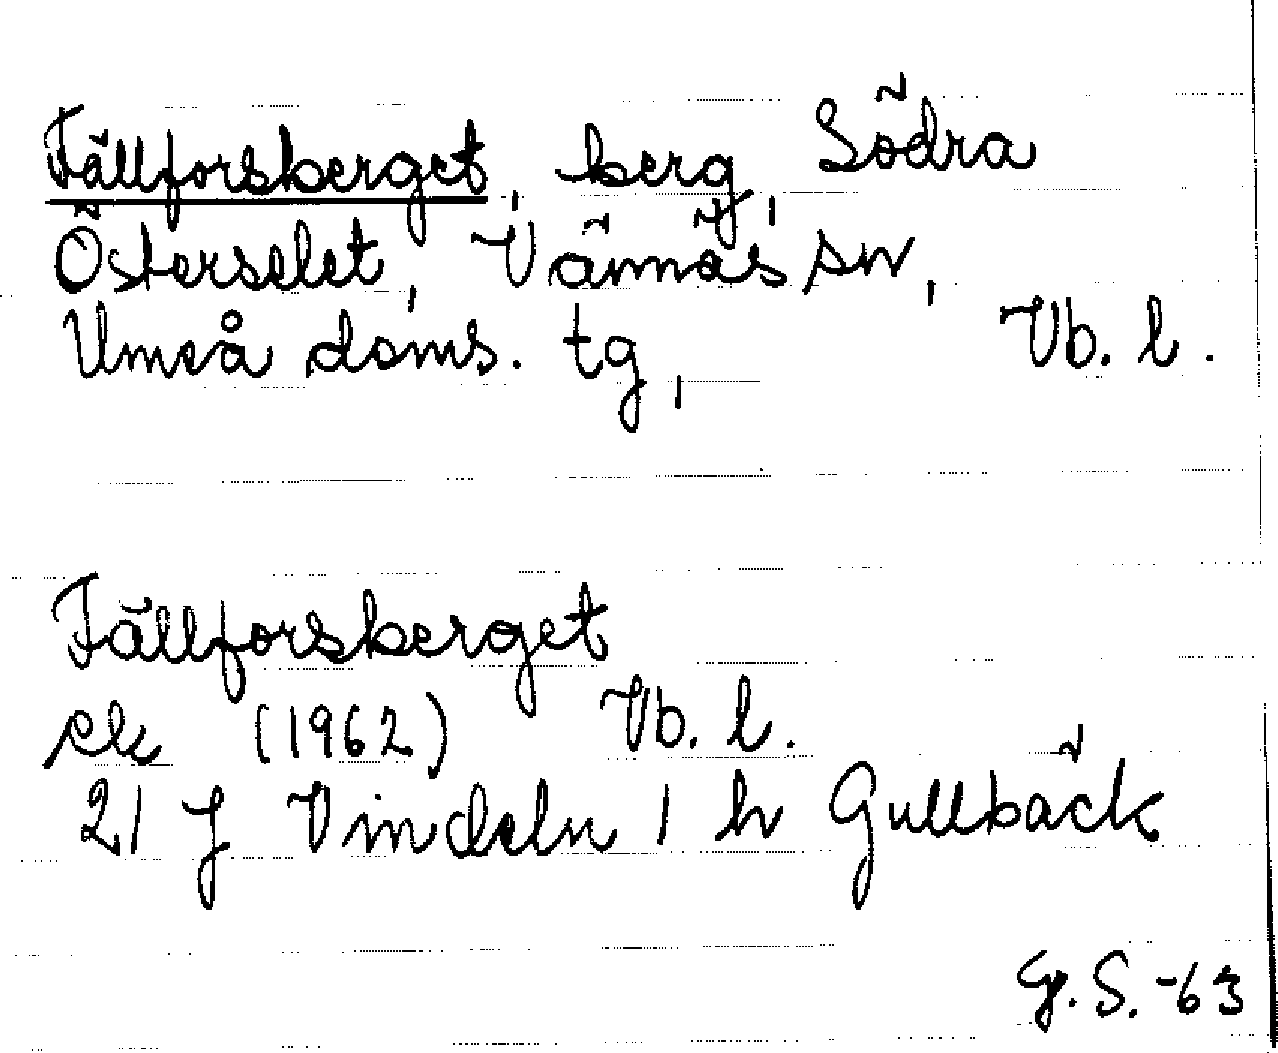 Fällforsberget, berg, Södra
Österselet, Vännäs sn,
Umeå doms. tg, Vb. l.
Fällforsberget
ek (1962) Vb. l.
21 J Vindeln 1 h Gullbäck
G. S. -63